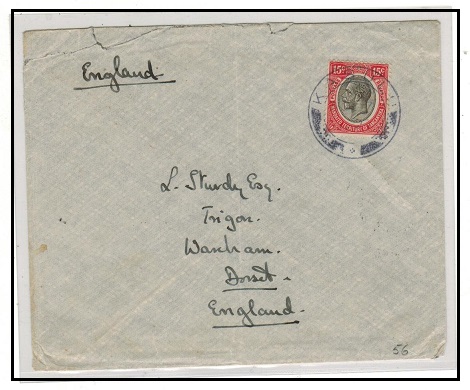 England
15c 15c
L. Sturdy Esq.
Trigon.
Wareham.
Dorset.
England.
56